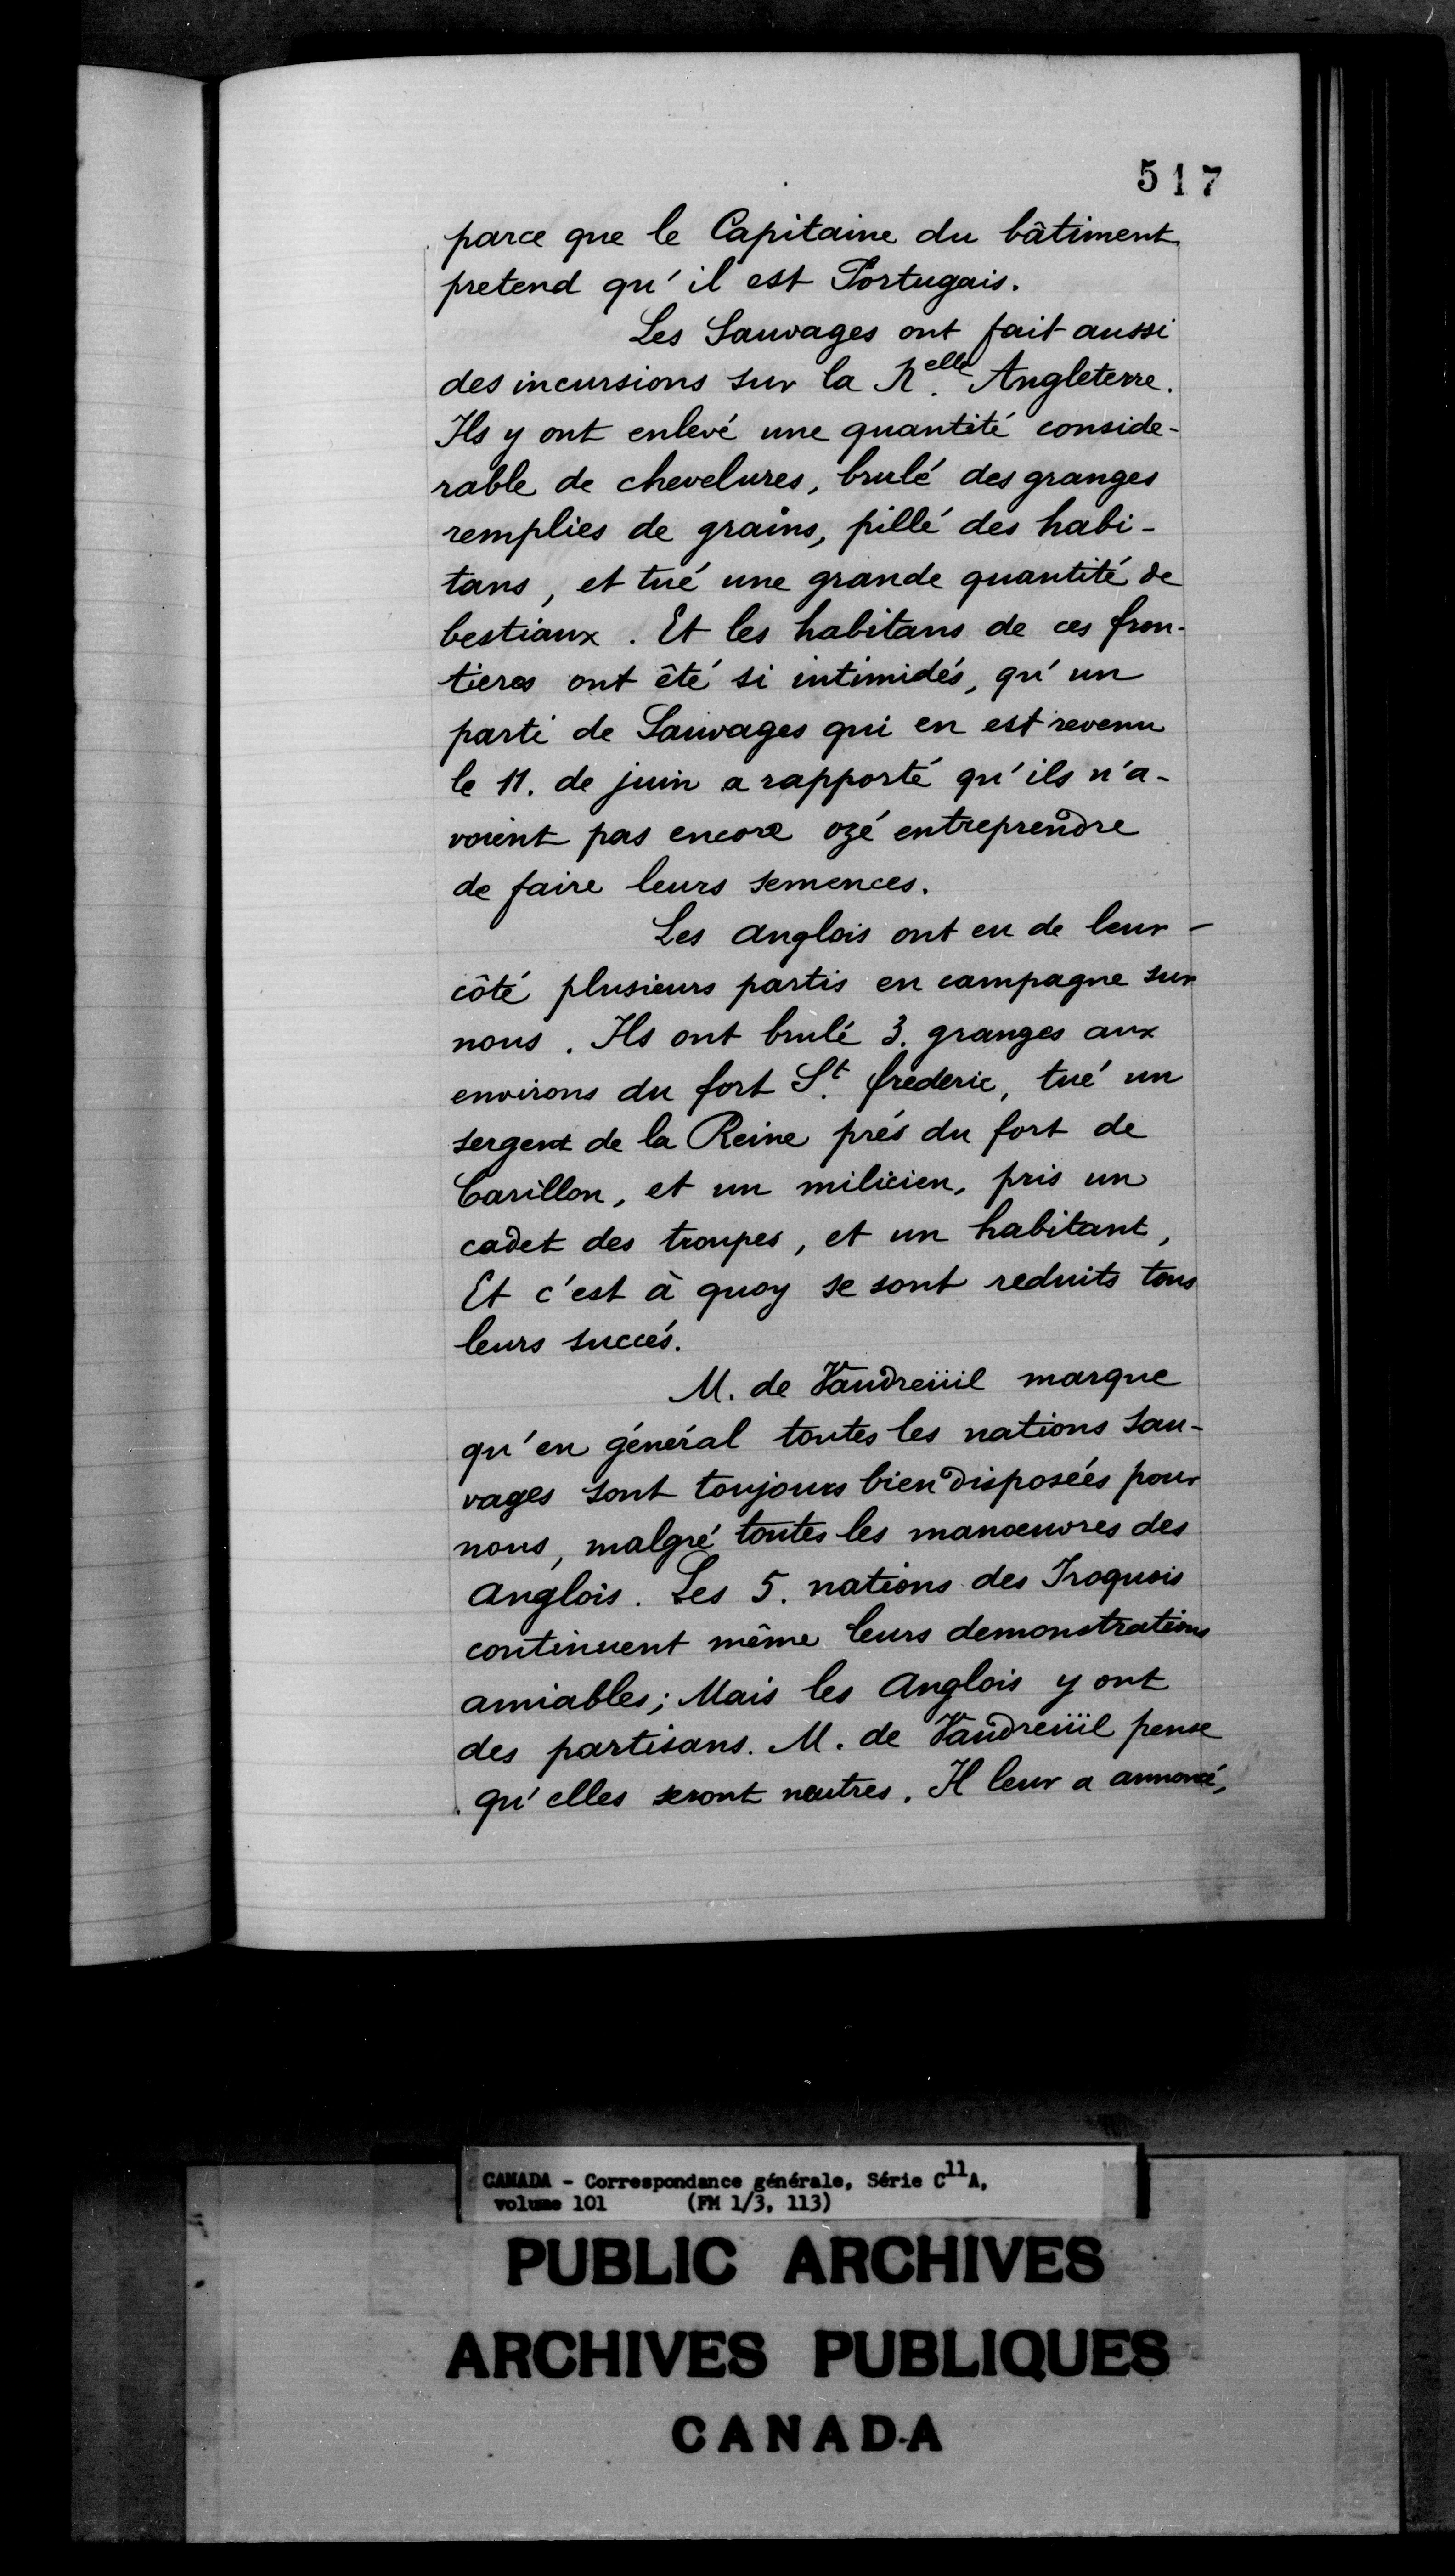 517
parce que le Capitaine du bâtiment
pretend qu'il est Portugais.
Les Sauvages ont fait aussi
des incursions sur la N.elle Angleterre.
Ils y ont enlevé une quantité conside-
rable de chevelures, brulé des granges
remplies de grains, pillé des habi-
tans, et tué une grande quantité de
bestiaux. Et les habitans de ces fron-
tieres ont été si intimidés, qu'un
parti de Sauvages qui en est revenu
le 11. de juin a rapporté qu'ils n'a-
voient pas encore ozé entreprendre
de faire leurs semences.
Les anglois ont eu de leur -
côté plusieurs partis en campagne sur
nous. Ils ont brulé 3. granges aux
environs du fort St. frederic, tué un
sergent de la Reine prés du fort de
Carillon, et un milicien, pris un
cadet des troupes, et un habitant,
Et c'est à quoy se sont reduits tous
leurs succés.
M. de Vaudreüil marque
qu'en général toutes les nations sau-
vages sont toujours bien disposées pour
nous, malgré toutes les manœuvres des
anglois. Les 5. nations des Iroquois
continuent même leurs demonstrations
amiables; Mais les Anglois y ont
des partisans. M. de Vaudreüil pense
qu'elles seront neutres. Il leur a annoncé,
CANADA - Correspondance générale, Série C11A,
volume 101 (FM 1/3, 113)
PUBLIC ARCHIVES
ARCHIVES PUBLIQUES
CANADA